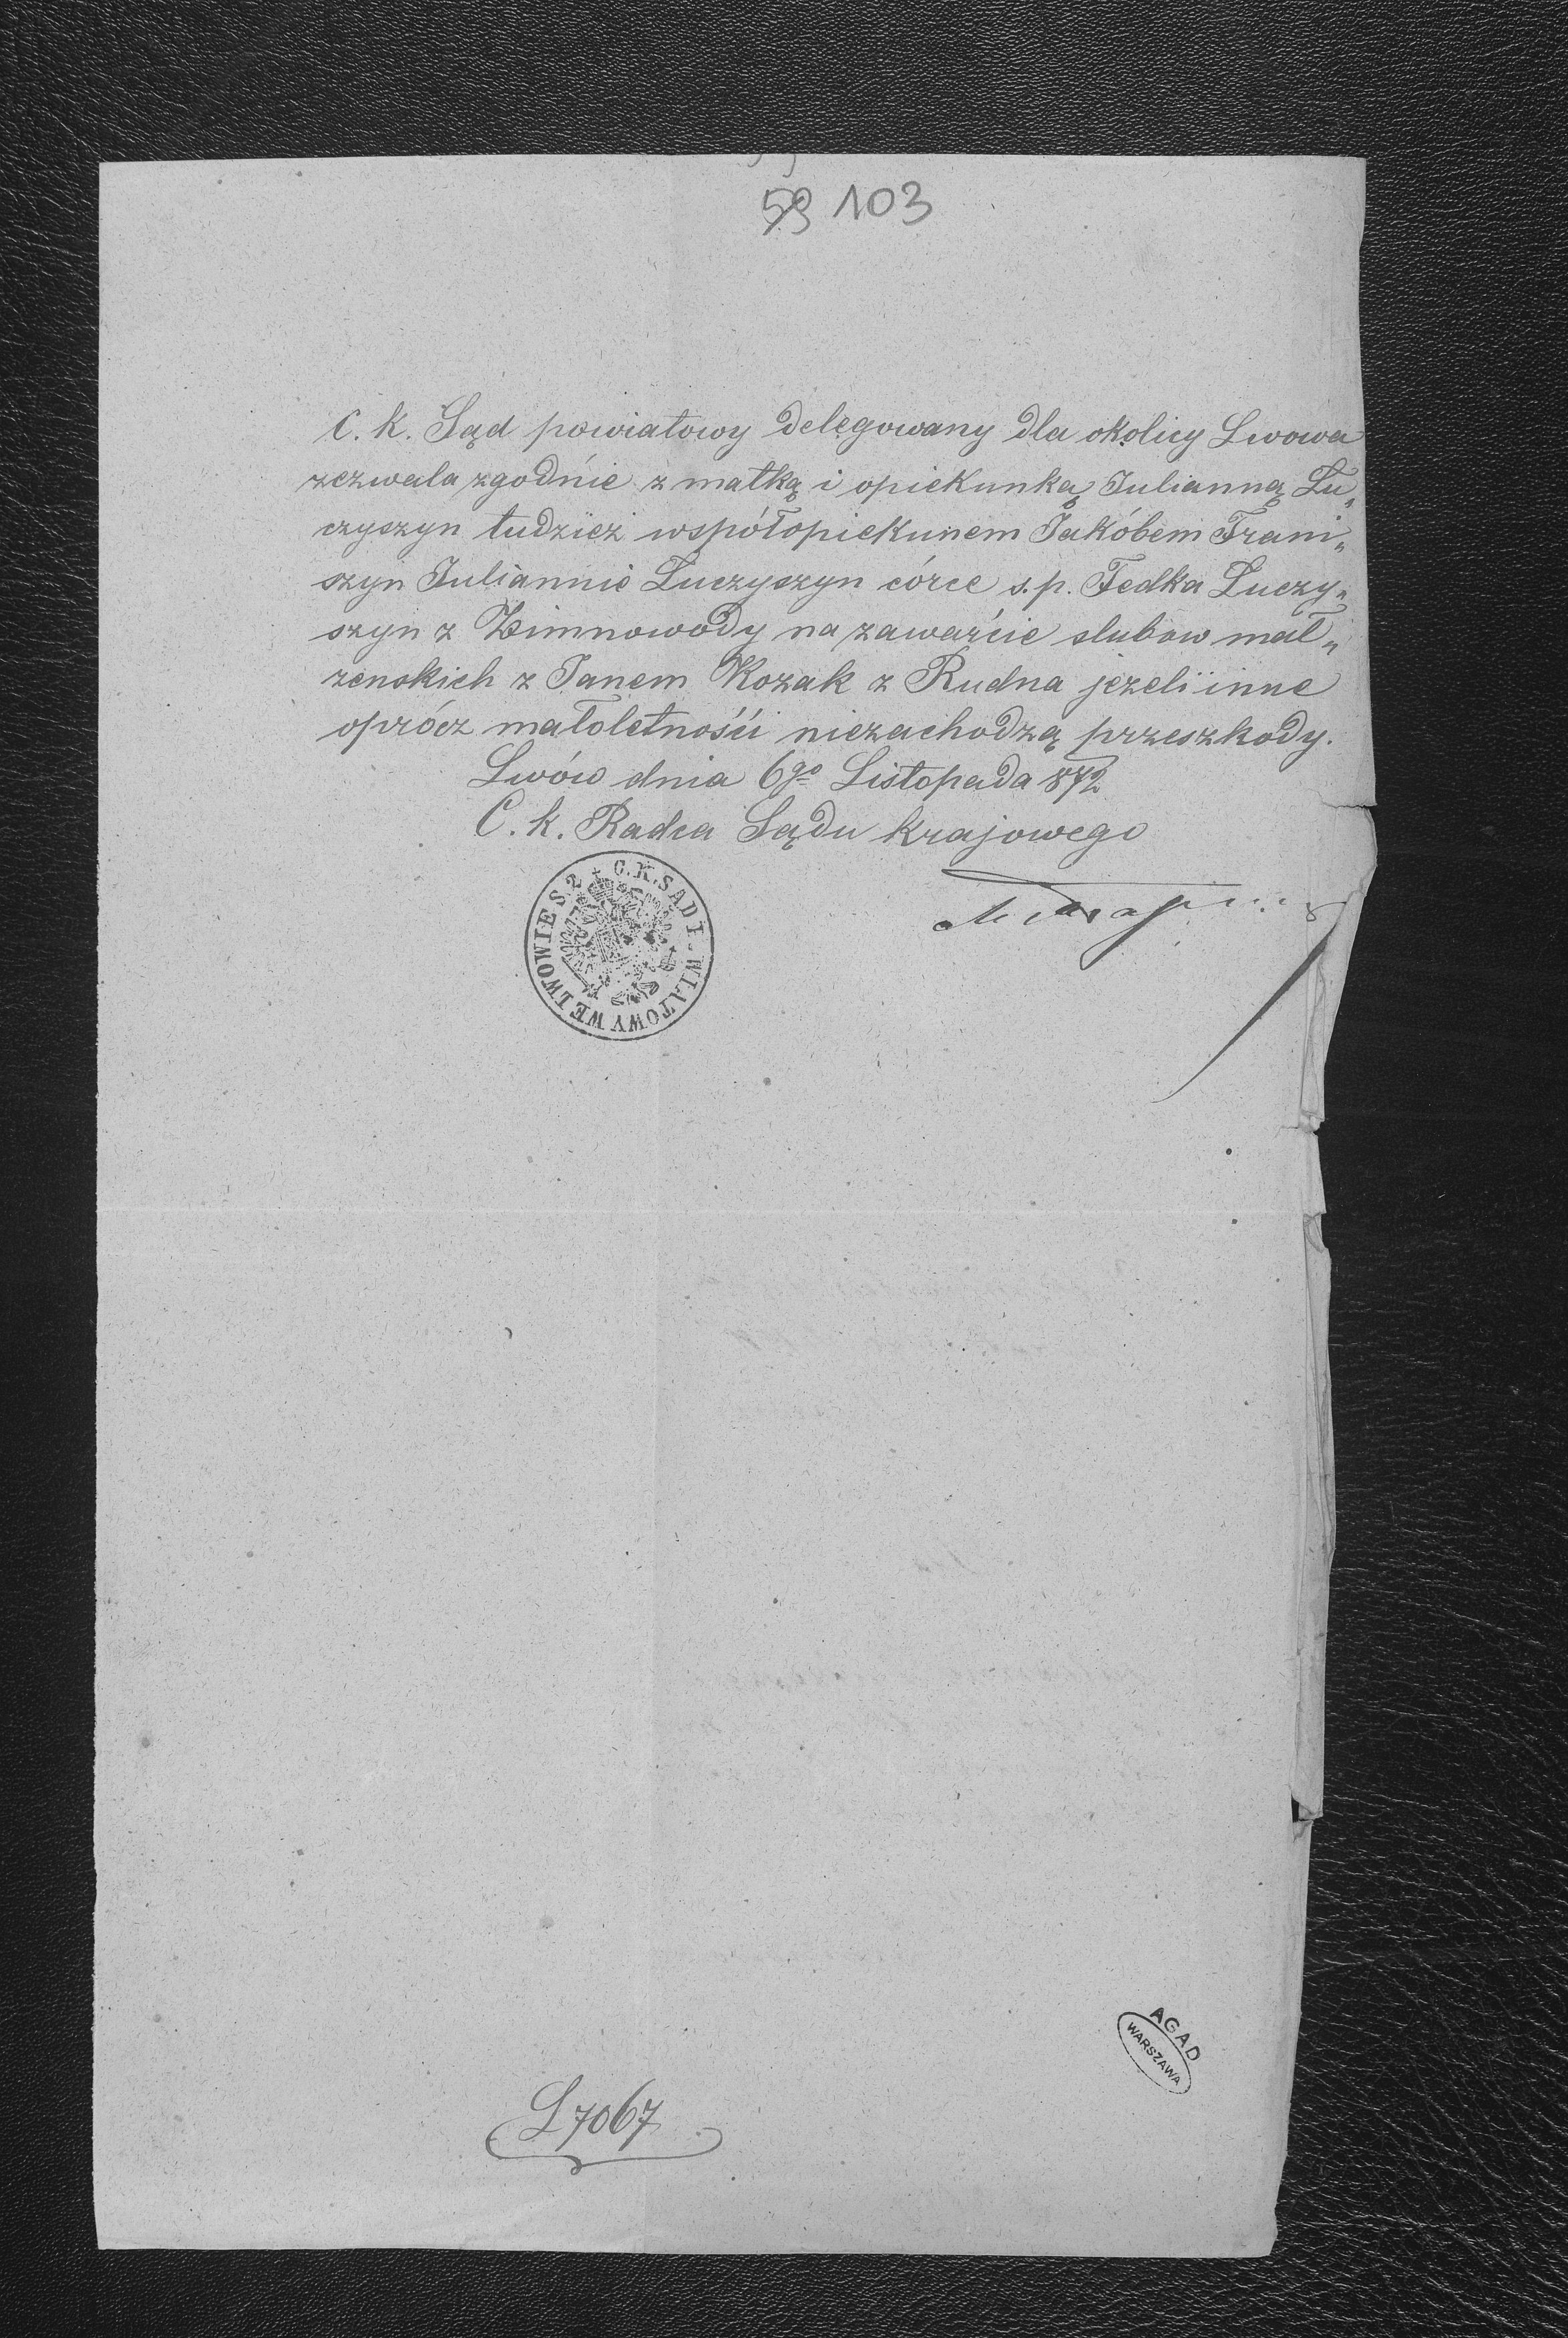 59 103
C. k. Sąd powiatowy delegowany dla okolicy Lwowa
zezwala zgodnie z matką i opiekunką Julianną Łu„
czyszyn tudzież współopiekunem Jakóbem Frani„
szyn Juliannie Łuczyszyn córce s.p. Fedka Łuczy„
szyn z Zimnowody na zawarcie slubow mał„
zenskich z Janem Kozak z Rudna jeżeli inne
oprócz małoletności niezachodzą przeszkody.
Lwów dnia 6go Listopada 872
C. k. Radca Sądu krajowego
C.K. SĄD P. WIATOWY WE LWOWIE S. 2
L 7067
AGAD
WARSZAWA